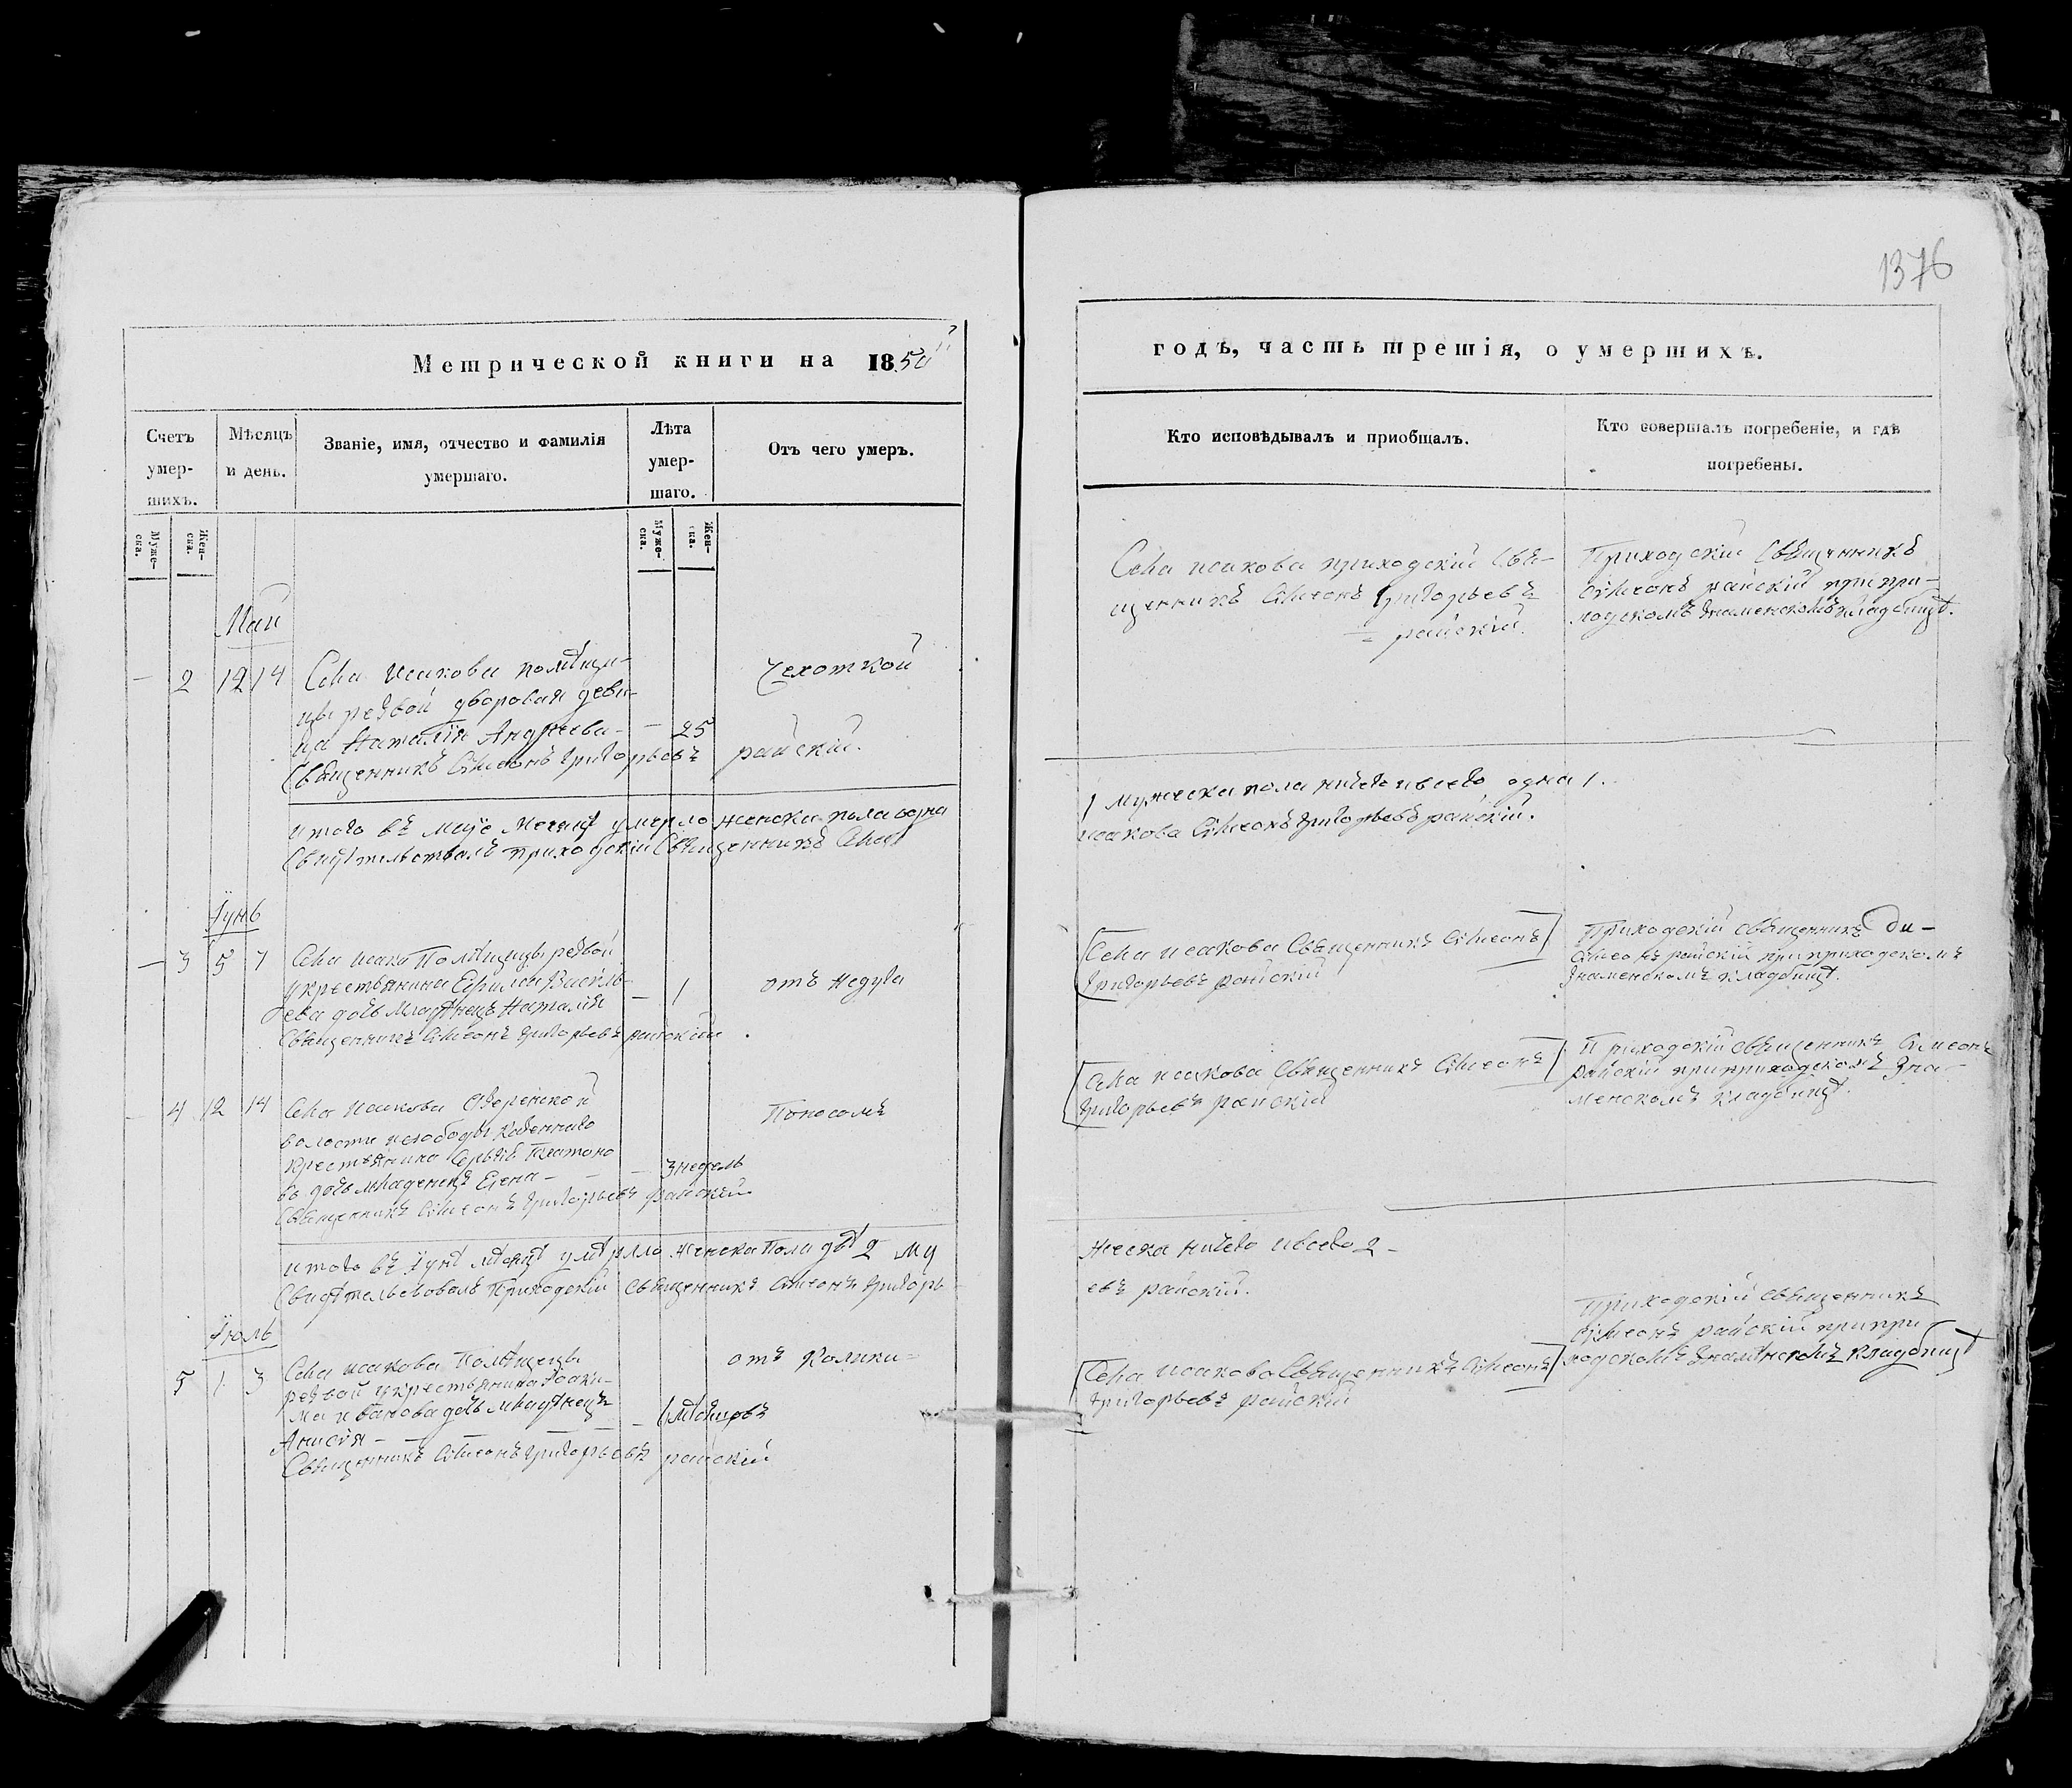 1376
Метрической книги на 1850й
годъ, часть третія, о умершихъ.
Счетъ умер-шихъ.
Мѣсяцъ и день.
Званіе, имя, отчество и фамилія умершаго.
Лѣта умер-шаго.
Отъ чего умеръ.
Кто исповѣдывалъ и приобщалъ.
Кто совершалъ погребеніе, и гдѣ погребены.
Муже-ска.
Жен-ска.
Муже-ска.
Жен-ска.
Май
— 2 12 14 Села Исакова помѣщи-
цы резвой дворовая деви-
ца Наталія Андреева — 25
Чехоткой
Священникъ Симеонъ Григорьевъ райскій.
Села исакова приходскій Свя-
щенникъ Симеонъ Григорьевъ
райскій.
Приходскій Священникъ
Симеонъ райскій при при-
ходскомъ Знаменскомъ кладбищѣ.
итого въ мауе месяцѣ умерло женска пола одна
1 мужеска пола ничего ивсего одна 1.
Свидѣтельствалъ приходскій Священникъ Села
исакова Симеонъ Григорьевъ райскій.
Iунь
— 3 5 7 Села исака Помѣщицы резвой
укрестьянина Ефима Василь-
ева дочь младѣнецъ Наталія — 1
отъ Недуга
Священникъ Симеонъ Григорьевъ райскій.
Села исакова Священникъ Симеонъ
Григорьевъ райскій
Приходскій священникъ Си-
Симеонъ райскій приприходскомъ
Знаменскомъ кладбищѣ.
— 4 12 14 Села Исакова
волости
крестьянина Сергѣя Платоно
ва дочь младенецъ Елена — — 3 недель
Поносомъ
Священникъ Симеонъ Григорьевъ райскій
Села исакова Священникъ Симеонъ
Григорьевъ райскій
Приходскій священникъ Симеонъ
Райскій приприходскомъ Зна-
менскомъ кладбищѣ.
итого въ Iунѣ мѣсяцѣ умѣрло женска Пола двѣ 2 му
жеска ничего ивсего 2 -
Свидѣтельствовалъ Приходскій священникъ Симеонъ Григорь
евъ райскій.
Iюль
5 1 3 Села исакова Помѣщицы
резвой укрестьянина Iоаки-
ма иванова дочь младѣнецъ
Анисія — —
отъ Колики
Священникъ Симеонъ Григорьевъ райскій
Села исакова Священникъ Симеонъ
Григорьевъ райскій
Приходскій священникъ
Симеонъ райскій припри
ходскомъ Знамѣнскомъ кладбищѣ